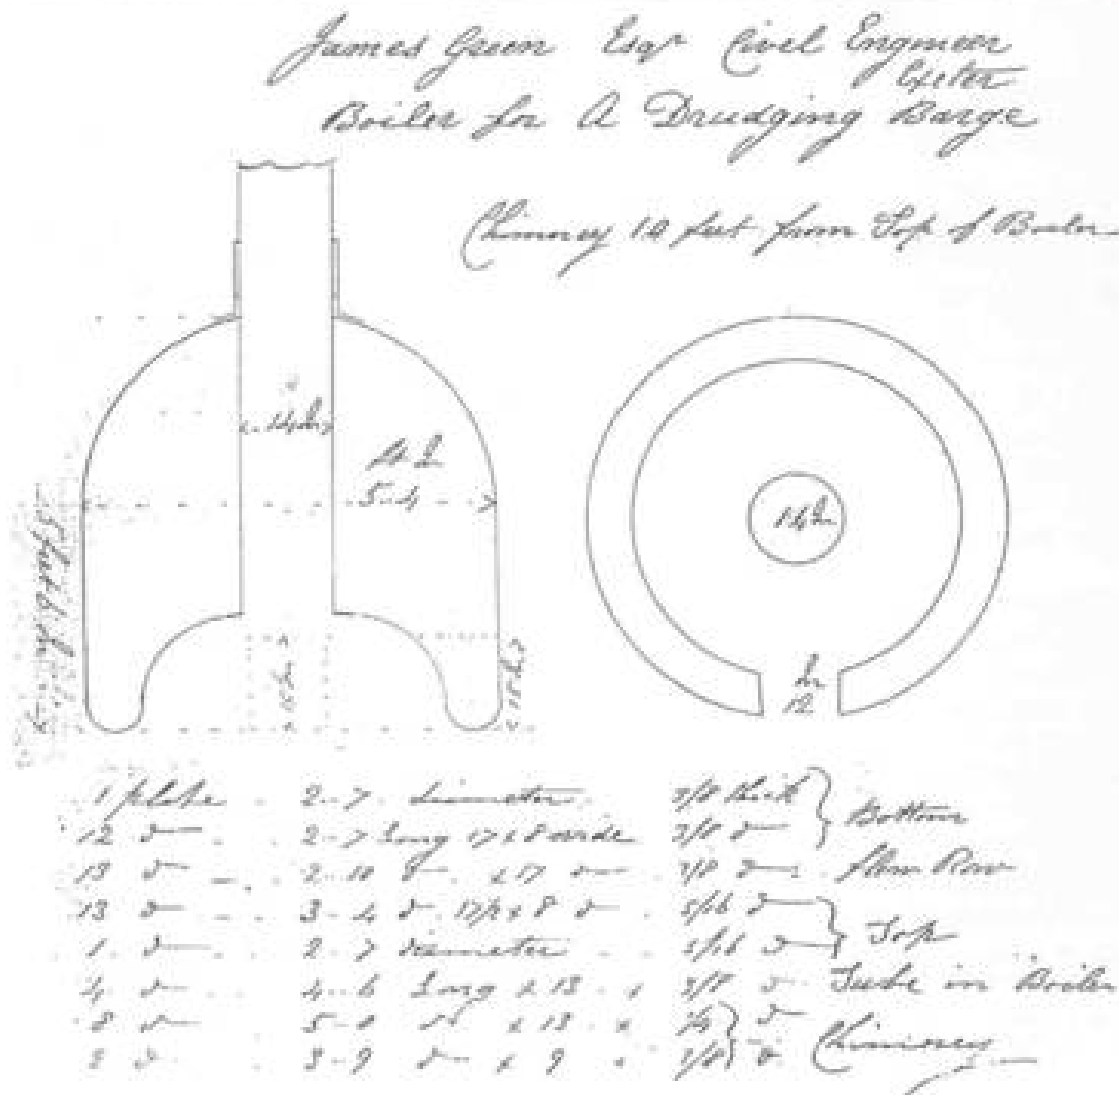 James Green Esqr Civel Engineer
Exeter
Boiler for A Drudging Barge
Chimney 10 feet from Top of Boiler
14 In
ft In
5-4
14 In
In
12
5 feet 6 In
15 In
15 In
1 plate 2-7 diameter 3/8 thick
12 do 2-7 Long 17 x 8 wide 3/8 do Bottom
13 do 2-10 do x 17 do 3/8 do Row
13 do 3-4 do 17 1/2 x 8 do 5/16 do
1 do 2-7 diameter 5/16 do Top
4 do 4-6 Long x 13 x 3/8 do Tube in Boiler
8 do 5-0 do x 13 x do
2 do 3-9 do x 9 x 1/8 do Chimney